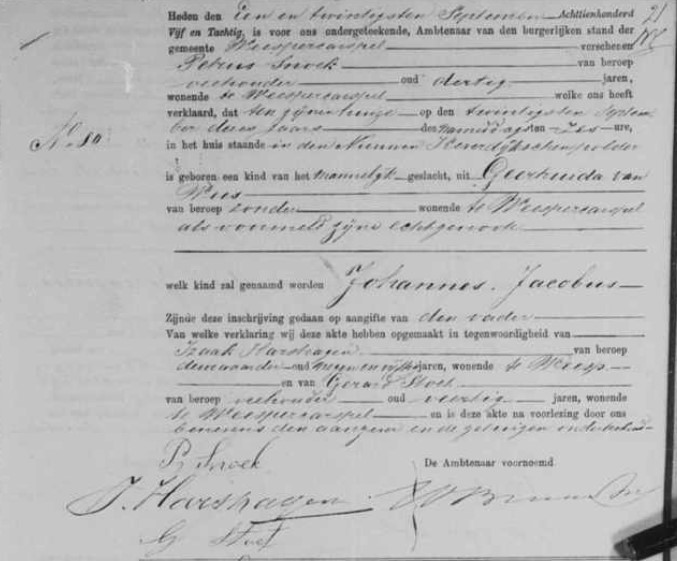 Heden den Een en twintigsten September Achttienhonderd
Vijf en Tachtig, is voor ons ondergeteekende, Ambtenaar van den burgerlijken stand der
gemeente Weespercarspel verschenen
Petrus Snoek van beroep
veehouder oud dertig jaren,
wonende te Weespercarspel welke ons heeft
verklaard, dat ten zijnen huize op den twintigsten Septem
ber dezes jaars des namiddags ten Zes ure,
No. 80.
in het huis staande in den Nieuwen Keverdijkschen polder
is geboren een kind van het mannelijk geslacht, uit Geertruida van
Wees
van beroep zonder wonende te Weespercarspel
als voormeld zijne echtgenoote
welk kind zal genaamd worden Johannes Jacobus
Zijnde deze inschrijving gedaan op aangifte van den vader
Van welke verklaring wij deze akte hebben opgemaakt in tegenwoordigheid van
Izaak Harshagen van beroep
deurwaarder oud jaren, wonende te Weesp
en van Gerard Stoet
van beroep veehouder oud veertig jaren, wonende
te Weespercarspel en is deze akte na voorlezing door ons
benevens den aangever en de getuigen onderteekend
P. Snoek
De Ambtenaar voornoemd
J. Harshagen
G Stoet